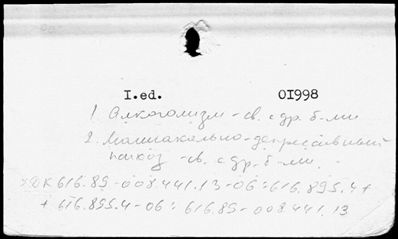 I.ed. 01998
1. Алкоголизм - св. с др. б-ми
2. Маниакально-депрессивный
психоз - св. с др. б-ми.
УДК 616.89-008.441.13-06:616.895.4+
+ 616.895.4-06:616.89-008.441.13